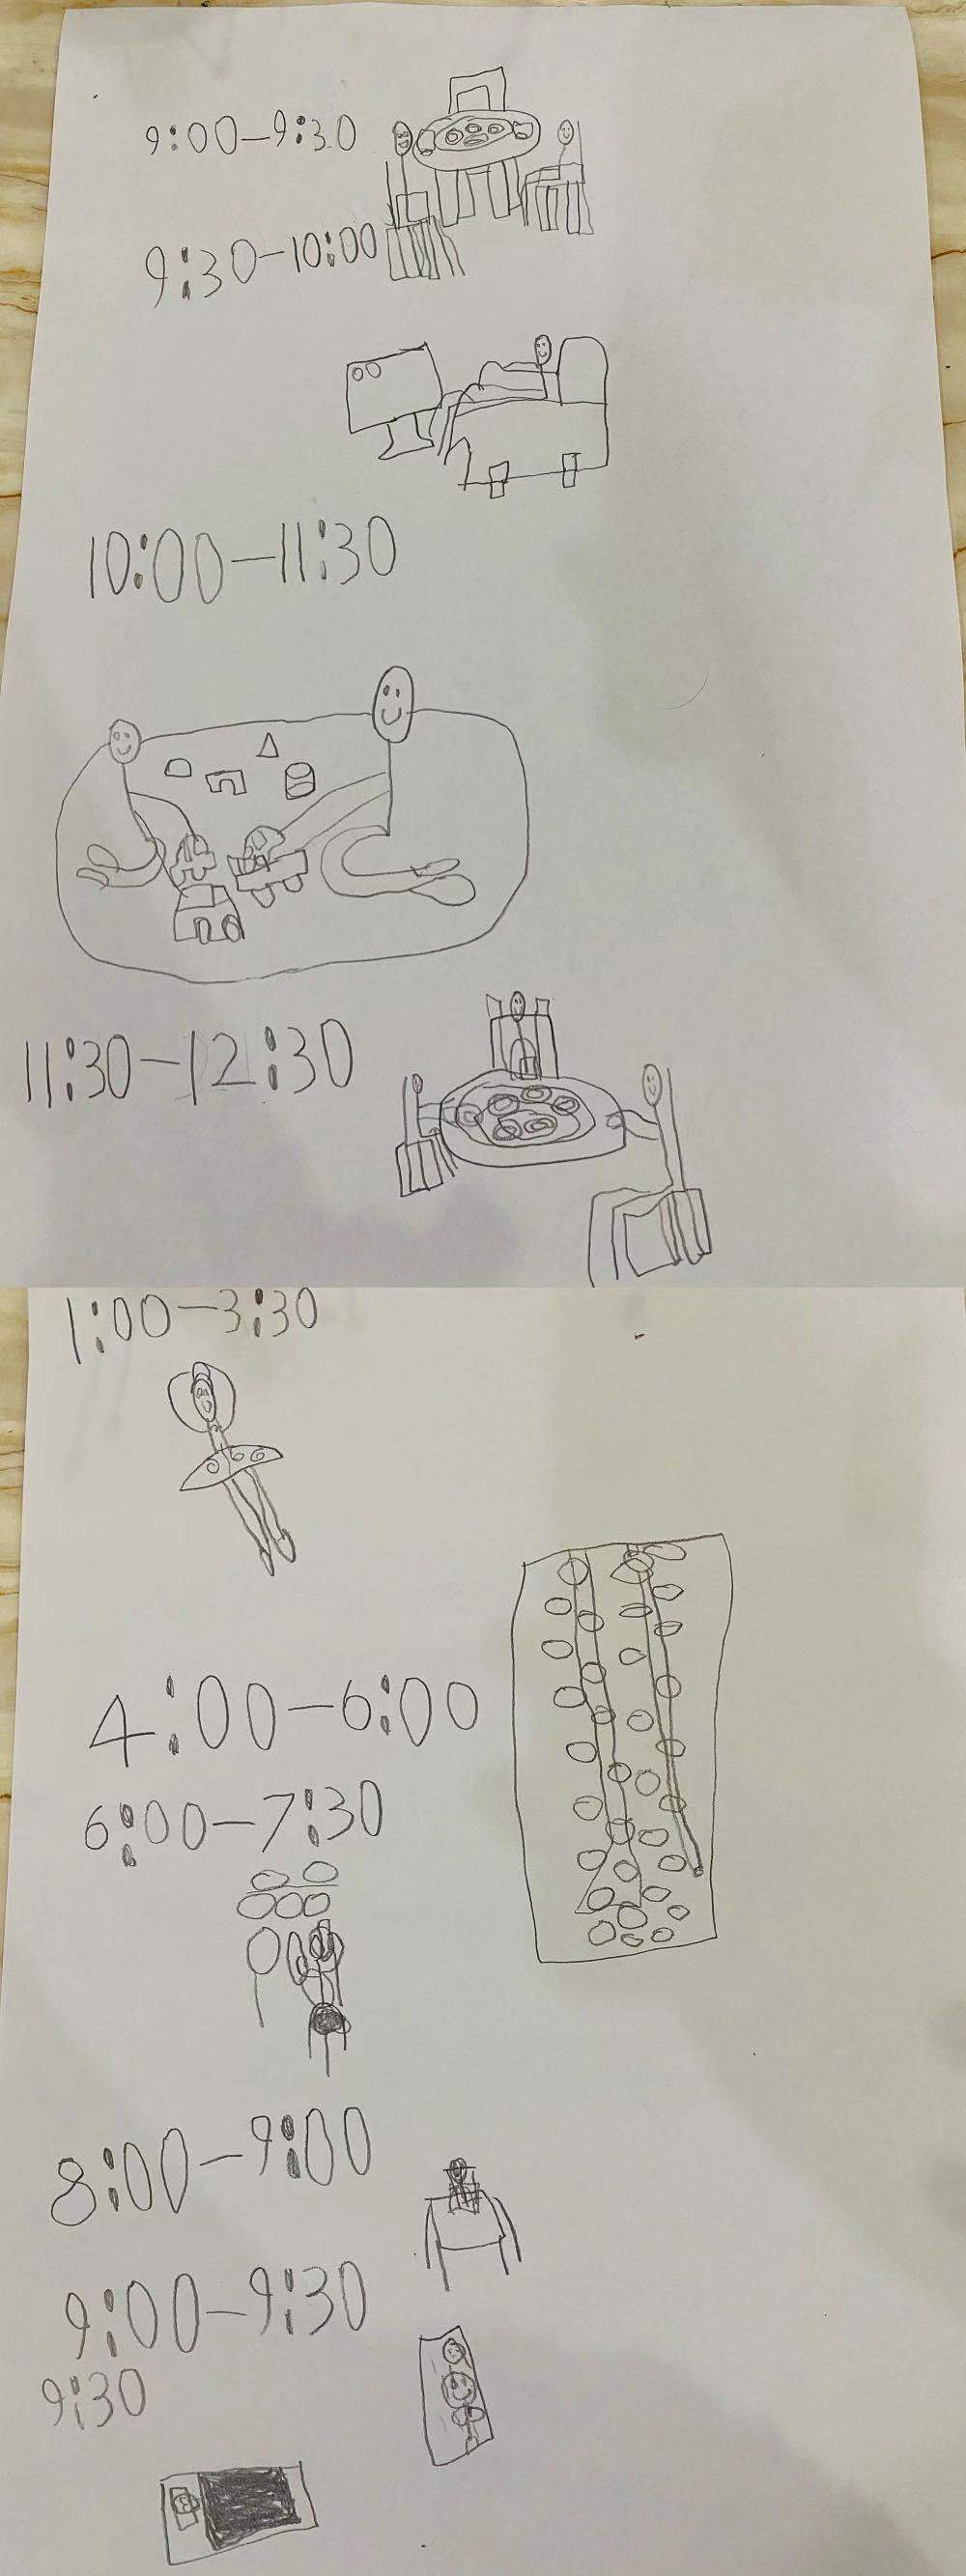 9:00-9:30
9:30-10:00
10:00-11:30
11:30-12:30
1:00-3:30
4:00-6:00
6:00-7:30
8:00-9:00
9:00-9:30
9:30